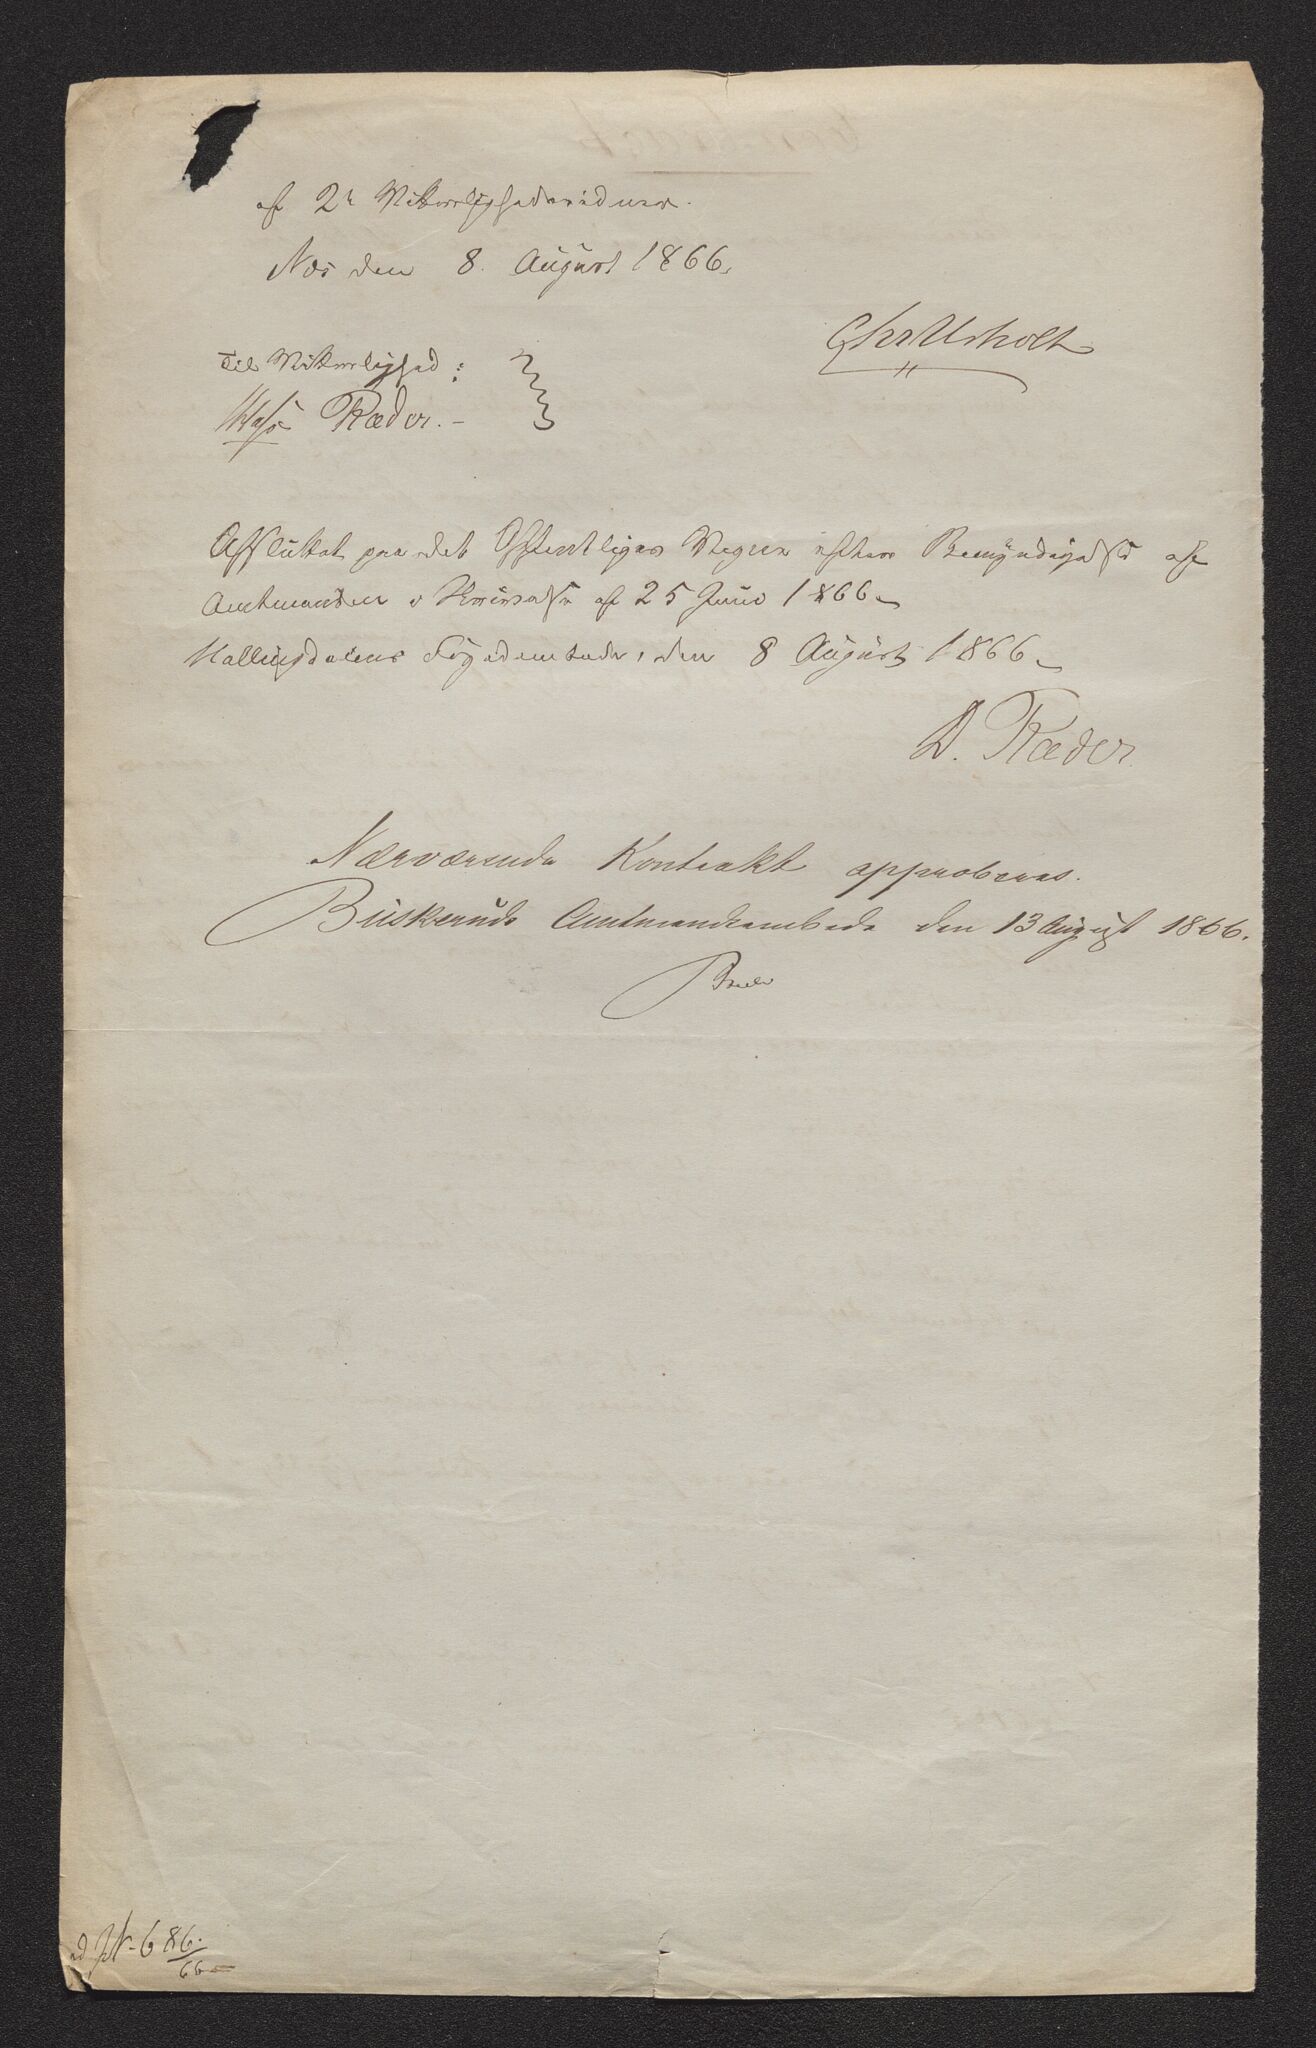 af 2de Vitterlighedsvidner.
Næs den 8. August 1866.
Chr Usholt
Til Vitterlighed:
Ræder.-
Afsluttet paa det Offentliges Vegne efter Bemyndigelse af
Amtmanden i Skrivelse af 25 Juni 1866
Hallingdalens Fogedembede, den 8 August 1866
D. Ræder.
Nærværende Kontrakt approberes.
Buskeruds Amtmandsembede den 13 August 1866.
Breder
ad JN. 686./66